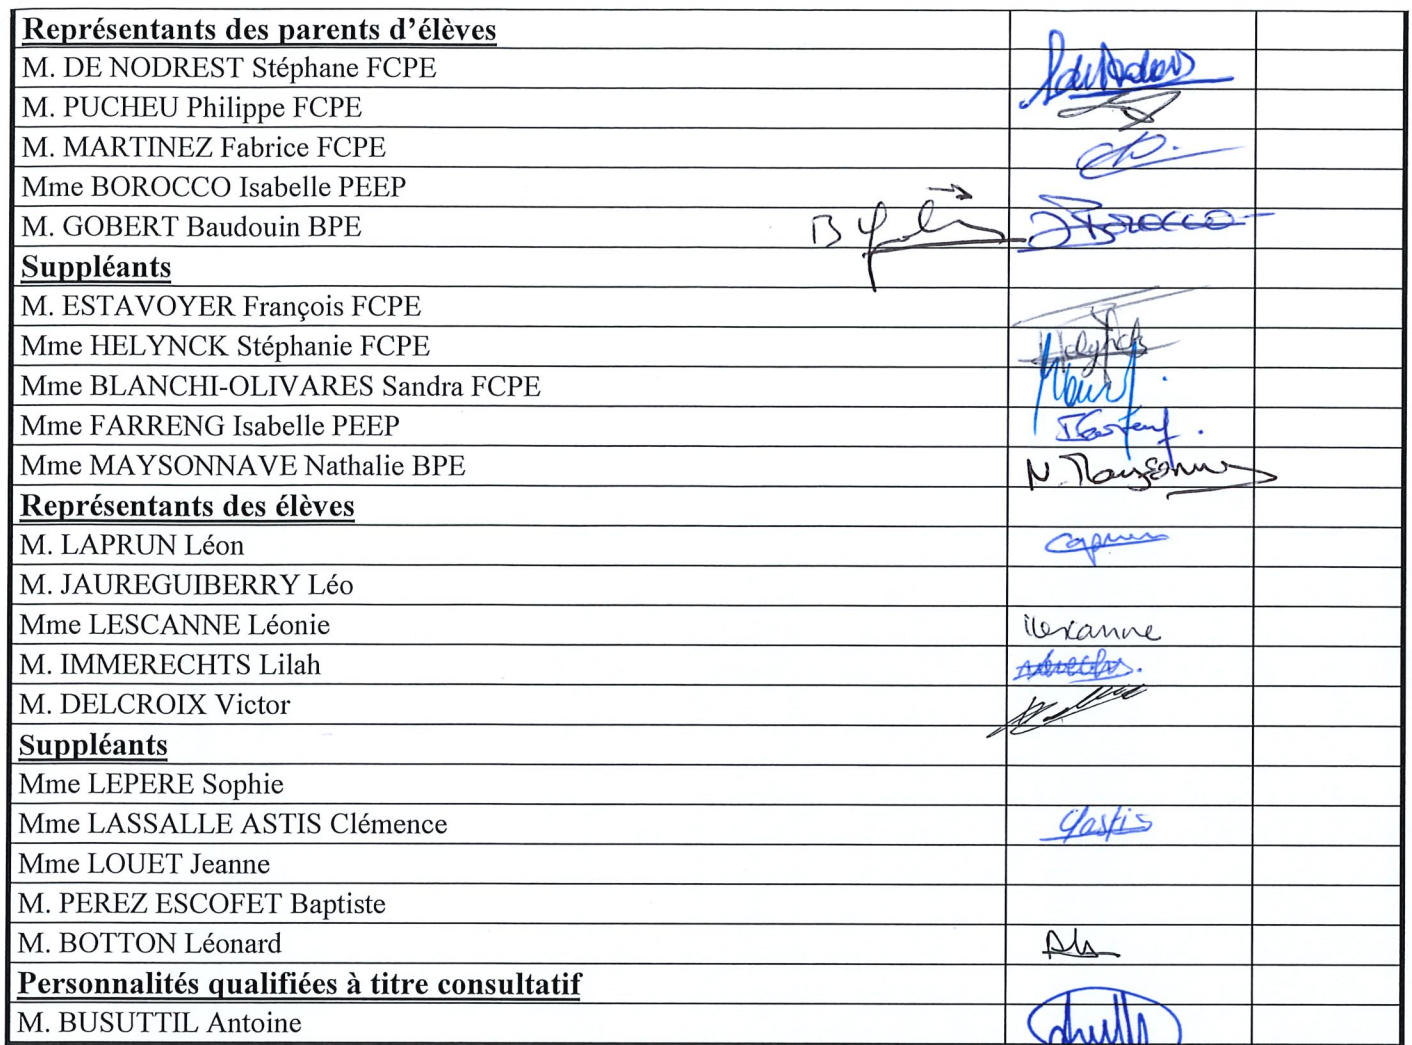 Représentants des parents d'élèves
M. DE NODREST Stéphane FCPE
M. PUCHEU Philippe FCPE
M. MARTINEZ Fabrice FCPE
Mme BOROCCO Isabelle PEEP
M. GOBERT Baudouin BPE B BOROCCO
Suppléants
M. ESTAVOYER François FCPE
Mme HELYNCK Stéphanie FCPE Helynck
Mme BLANCHI-OLIVARES Sandra FCPE
Mme FARRENG Isabelle PEEP
Mme MAYSONNAVE Nathalie BPE N.
Représentants des élèves
M. LAPRUN Léon
M. JAUREGUIBERRY Léo
Mme LESCANNE Léonie
M. IMMERECHTS Lilah
M. DELCROIX Victor
Suppléants
Mme LEPERE Sophie
Mme LASSALLE ASTIS Clémence
Mme LOUET Jeanne
M. PEREZ ESCOFET Baptiste
M. BOTTON Léonard
Personnalités qualifiées à titre consultatif
M. BUSUTTIL Antoine